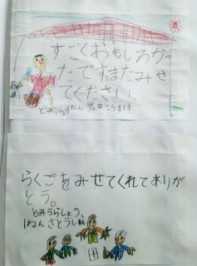 すごくおもしろかっ
たですまたみせ
てください
らくごをみせてくれてありが
とう。
とみうらしょう
1ねんさとうし